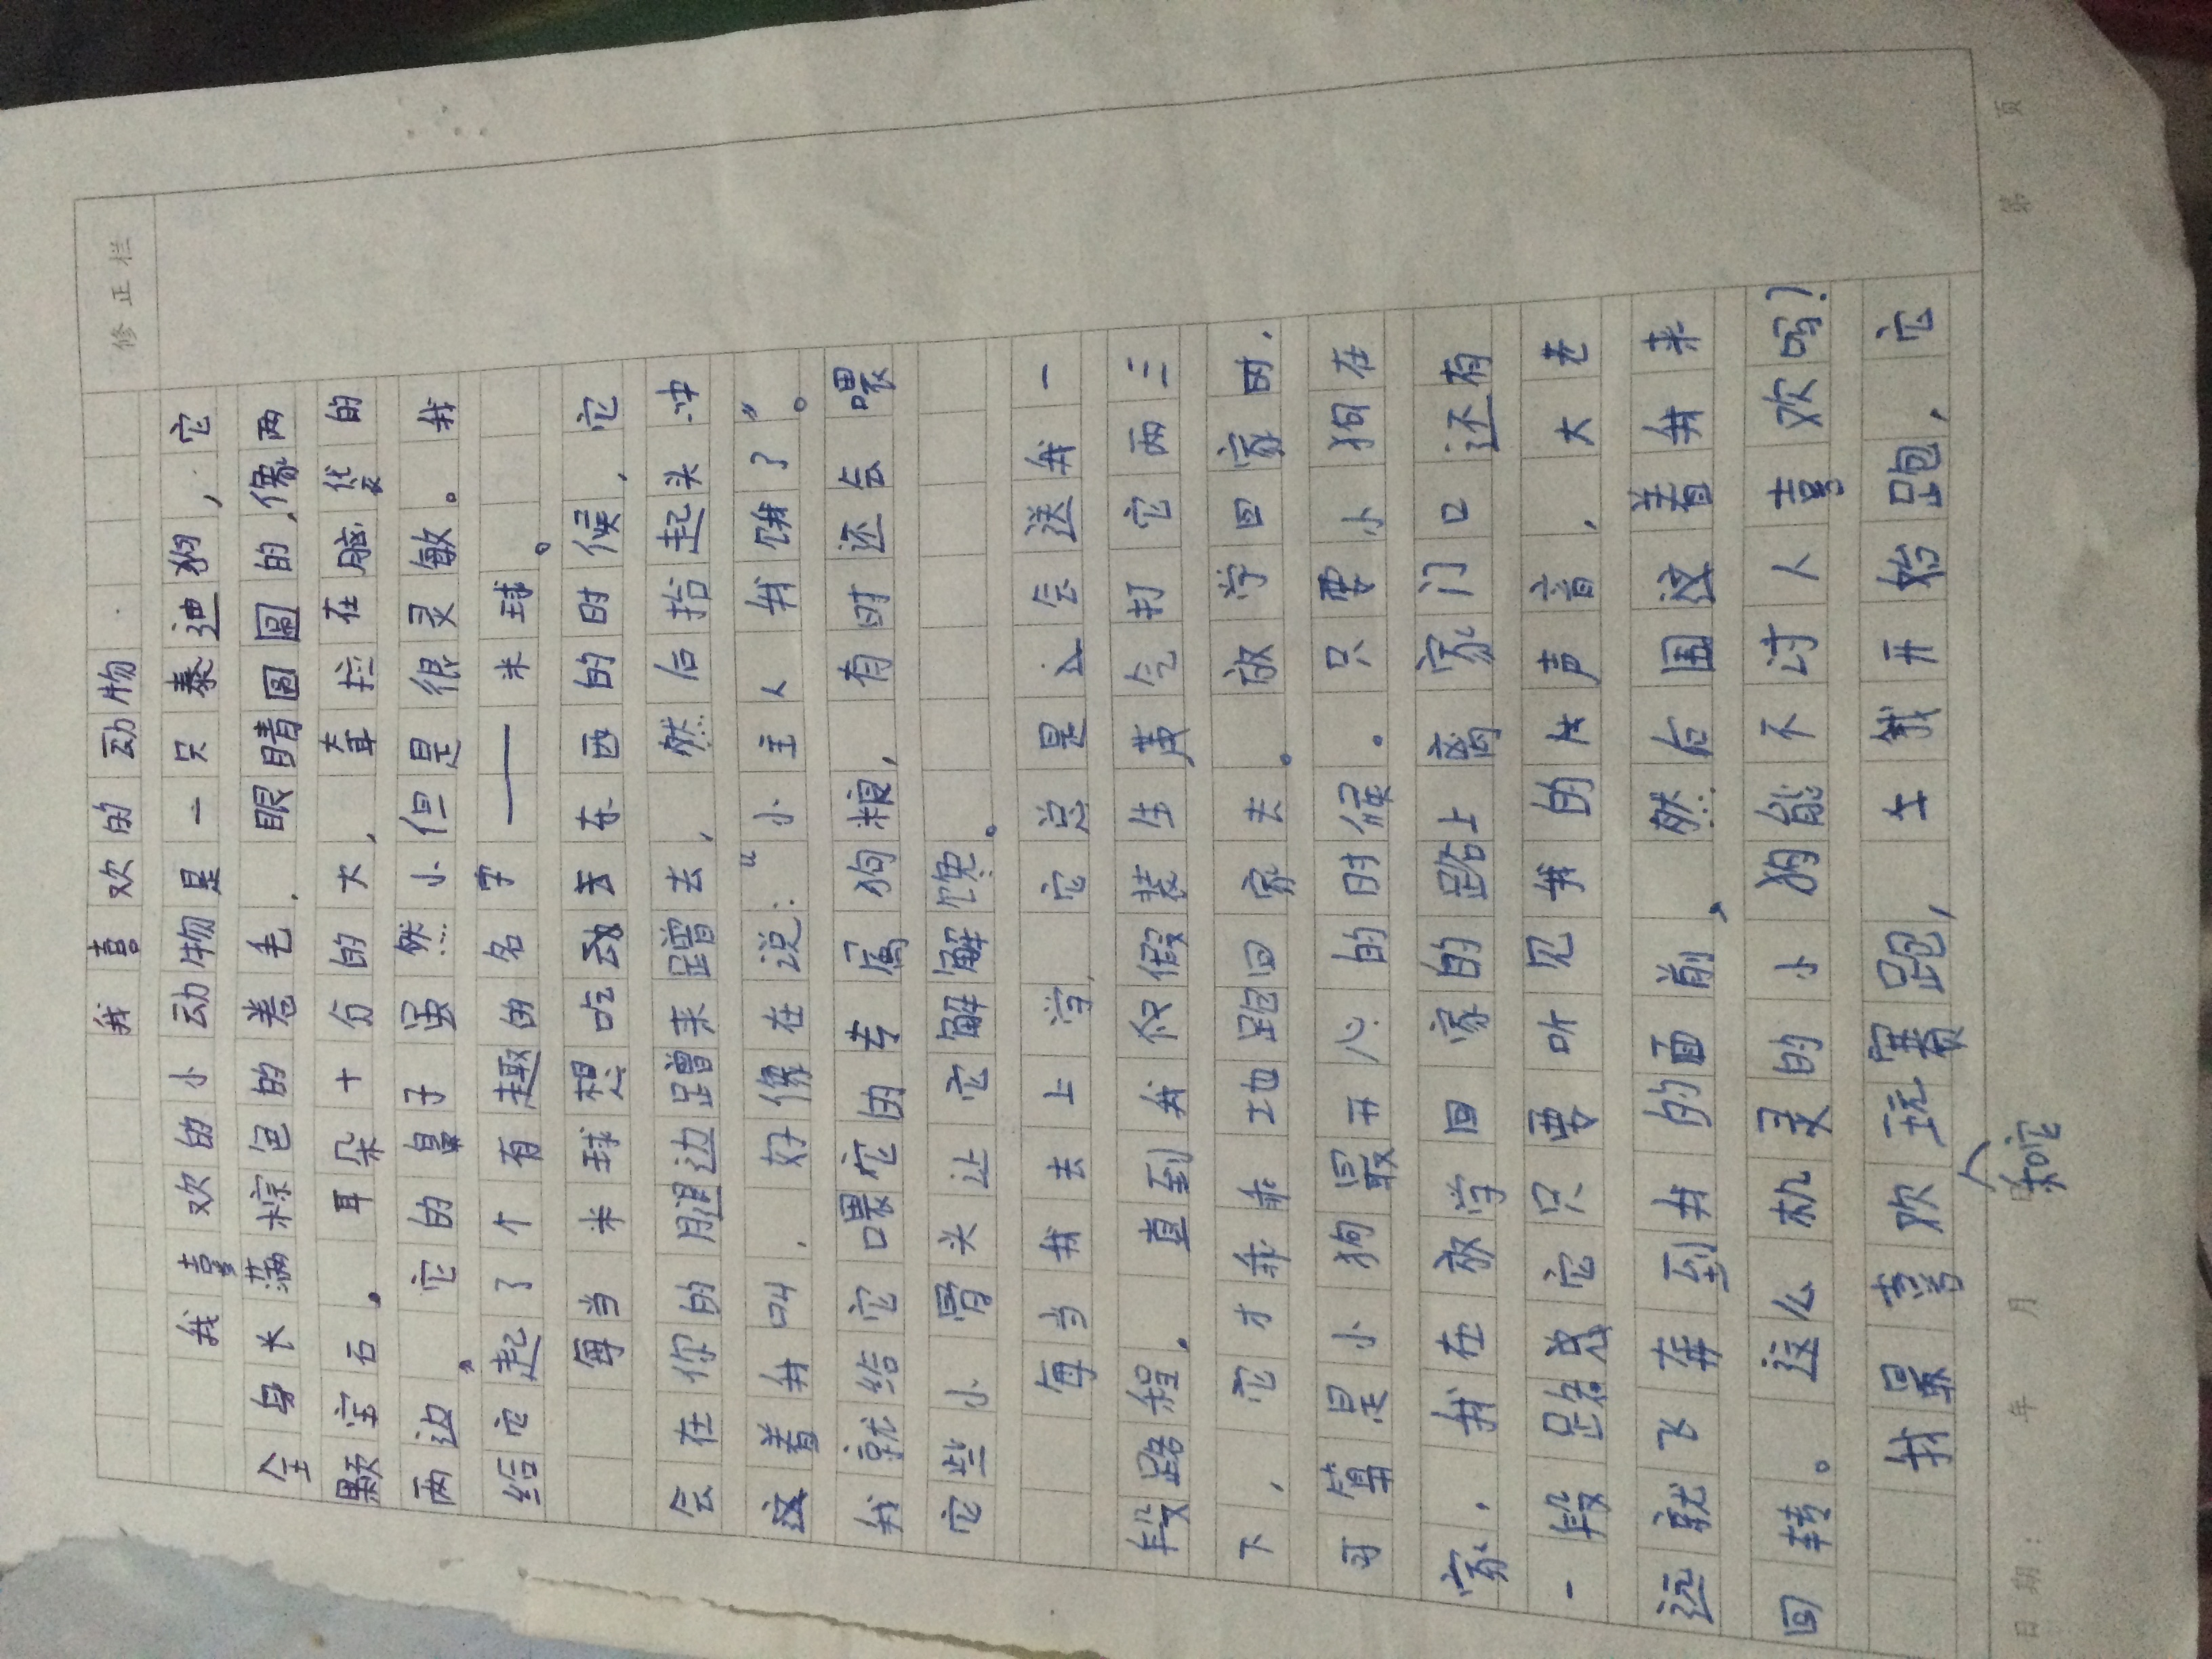 修正栏
我喜欢的动物
我喜欢的小动物是一只泰迪狗，它
全身长满棕色的卷毛，眼睛圆圆的，像两
颗宝石。耳朵十分的大，耷拉在脑袋的
两边。它的鼻子虽然小但是很灵敏。我
给它起了个有趣的名字——米球。
每当米球想吃东西的时候，它
会在你的腿边蹭来蹭去，然后抬起头冲
这着我叫，好像在说：“小主人我饿了”。
我就给它喂它的专属狗粮，有时还会喂
它些小骨头让它解解馋。
每当我去上学，它总是会送我一
段路程。直到我假装生气打它两三
下，它才乖乖地跑回家去。放学回家时，
可算是小狗最开心的时候。只要小狗在
家，我在放学回家的路上离家门口还有
一段距离它只要听见我的声音，大老
远就飞奔到我的面前，然后围这着我来
回转。这么机灵的小狗能不讨人喜欢吗？
我最喜欢玩赛跑，开始跑，它
和它
日期：年月第页